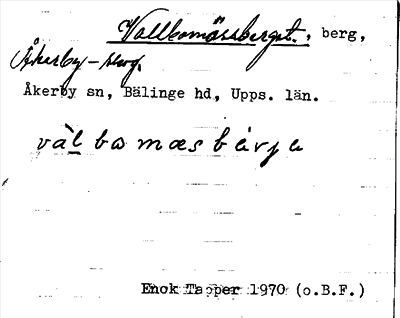 Vallbomässberget., berg,
Åkerby – skog.
Åkerby sn, Bälinge hd, Upps. län.
vàl bω mæs bärja
Enok Tapper 1970 (o.B.F.)